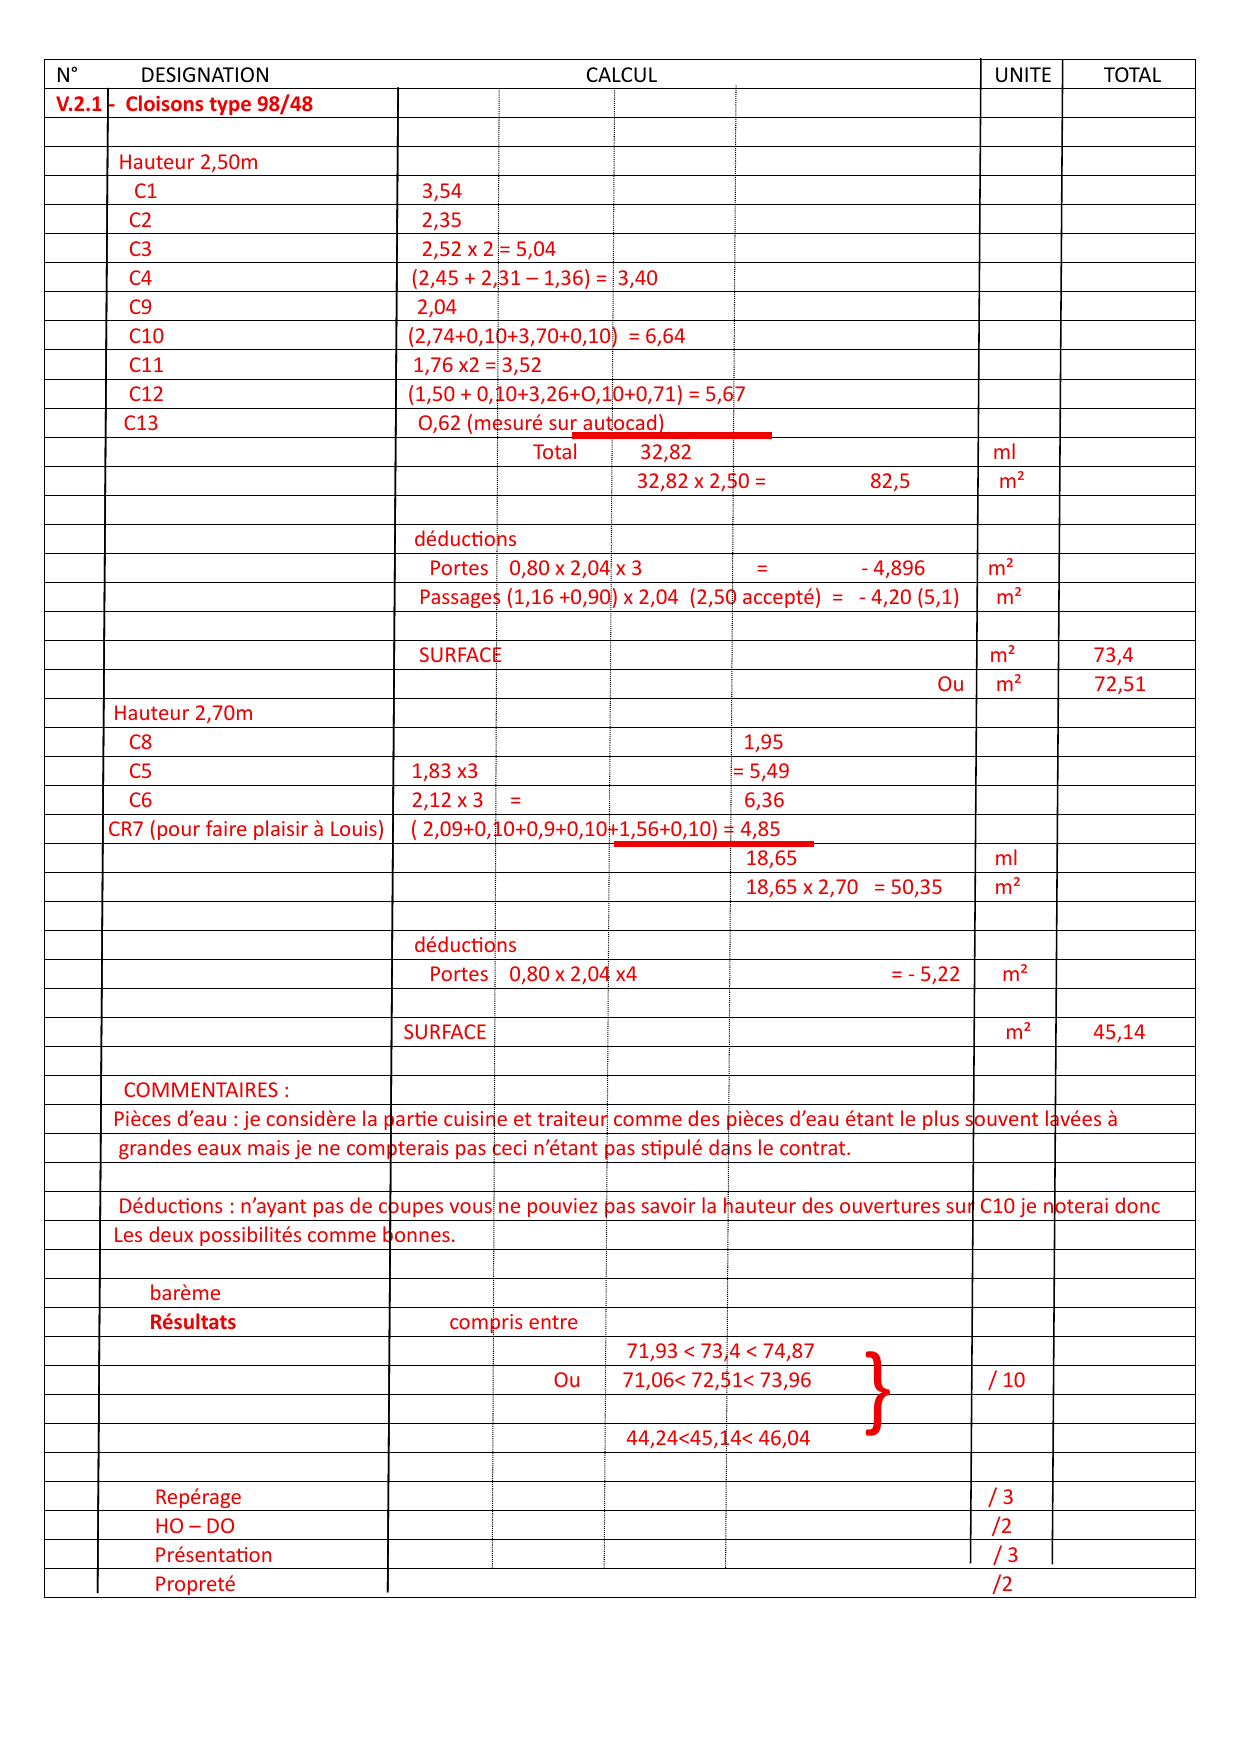 N° DESIGNATION CALCUL UNITE TOTAL
V.2.1 - Cloisons type 98/48
Hauteur 2,50m
C1 3,54
C2 2,35
C3 2,52 x 2 = 5,04
C4 (2,45 + 2,31 – 1,36) = 3,40
C9 2,04
C10 (2,74+0,10+3,70+0,10) = 6,64
C11 1,76 x2 = 3,52
C12 (1,50 + 0,10+3,26+O,10+0,71) = 5,67
C13 O,62 (mesuré sur autocad)
Total 32,82 ml
32,82 x 2,50 = 82,5 m²
déductions
Portes 0,80 x 2,04 x 3 = - 4,896 m²
Passages (1,16 +0,90) x 2,04 (2,50 accepté) = - 4,20 (5,1) m²
SURFACE m² 73,4
Ou m² 72,51
Hauteur 2,70m
C8 1,95
C5 1,83 x3 = 5,49
C6 2,12 x 3 = 6,36
CR7 (pour faire plaisir à Louis) ( 2,09+0,10+0,9+0,10+1,56+0,10) = 4,85
18,65 ml
18,65 x 2,70 = 50,35 m²
déductions
Portes 0,80 x 2,04 x4 = - 5,22 m²
SURFACE m² 45,14
COMMENTAIRES :
Pièces d’eau : je considère la partie cuisine et traiteur comme des pièces d’eau étant le plus souvent lavées à
grandes eaux mais je ne compterais pas ceci n’étant pas stipulé dans le contrat.
Déductions : n’ayant pas de coupes vous ne pouviez pas savoir la hauteur des ouvertures sur C10 je noterai donc
Les deux possibilités comme bonnes.
barème
Résultats compris entre
71,93 < 73,4 < 74,87
Ou 71,06< 72,51< 73,96 } / 10
44,24<45,14< 46,04
Repérage / 3
HO – DO /2
Présentation / 3
Propreté /2